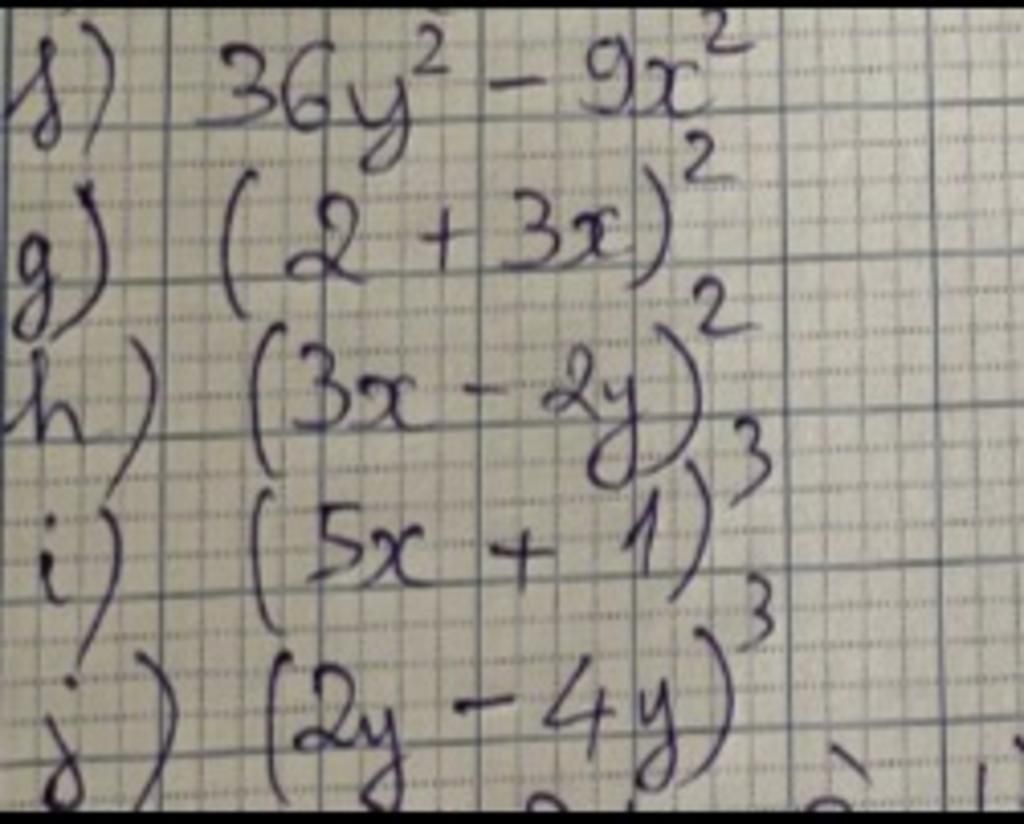 f) 36y² - 9x²
g) (2 + 3x)²
h) (3x - 2y)²
i) (5x + 1)³
j) (2y - 4y)³